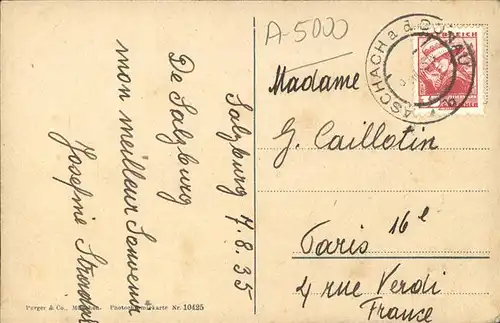 A-5000
ASCHACH a. d. DONAU
Madame
G. Caillotin
Paris 16e
4 rue Verdi
France
Salzburg 7.8.35
De Salzburg
mon meilleur Souvenir
Josefine
Purger & Co., München. Photochromiekarte Nr. 10425